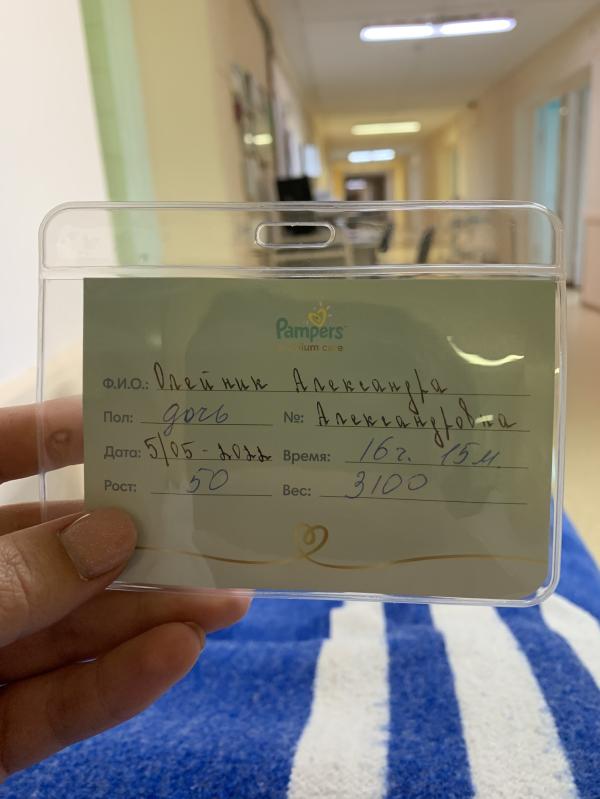 Pampers
premium care
Ф.И.О.: Олейник Александра
Пол: дочь №: Александровна
Дата: 5/05-2022 Время: 16 г. 15 м.
Рост: 50 Вес: 3100